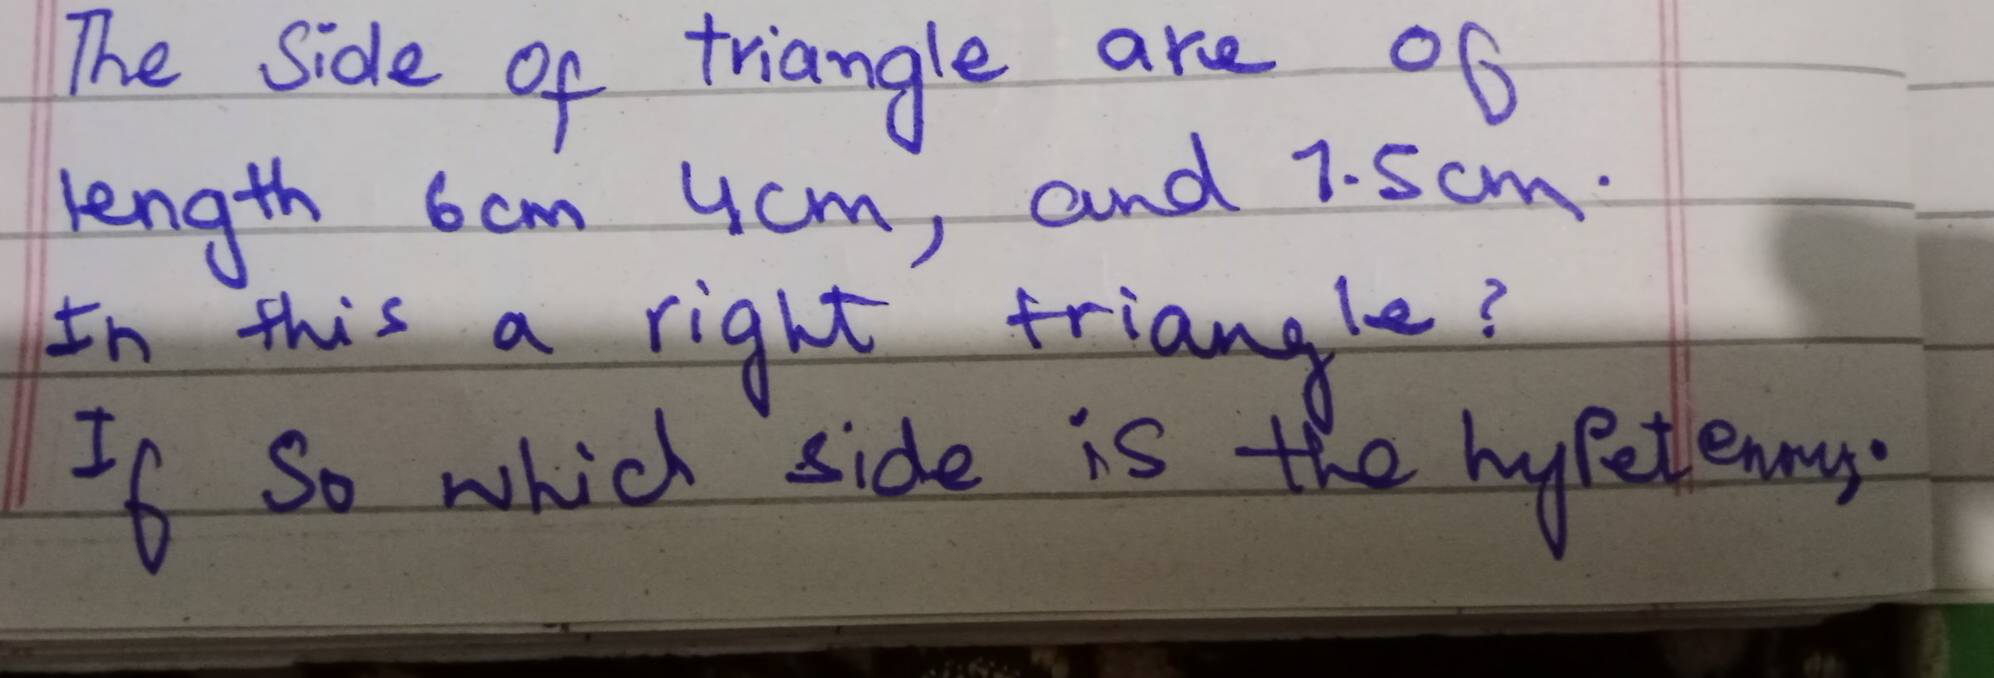 The Side of triangle are of
length 6cm 4cm, and 7.5cm.
In this a right triangle?
If so which side is the hypetenny.